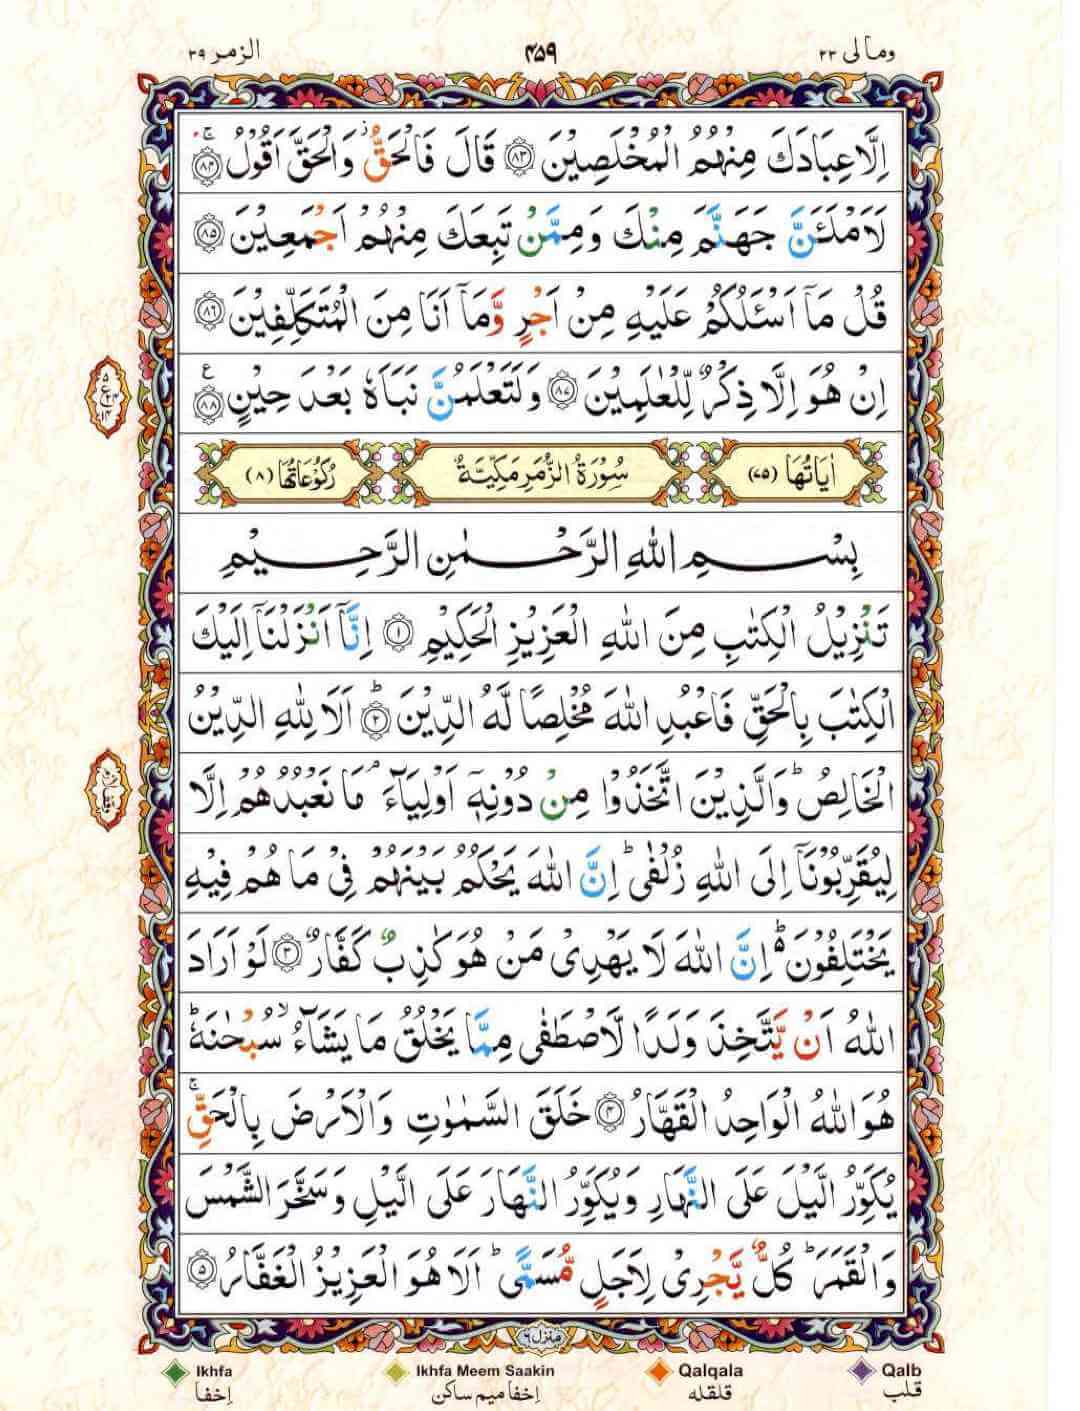 ومالی ۲۳ ۴۵۹ الزمر ۳۹
اِلَّا عِبَادَكَ مِنْهُمُ الْمُخْلَصِيْنَ ﴿۸۳﴾ قَالَ فَالْحَقُّ ز وَالْحَقَّ اَقُوْلُ ۚ﴿۸۴﴾
لَاَمْلَـَٔنَّ جَهَنَّمَ مِنْكَ وَمِمَّنْ تَبِعَكَ مِنْهُمْ اَجْمَعِيْنَ ﴿۸۵﴾
قُلْ مَاۤ اَسْـَٔلُكُمْ عَلَيْهِ مِنْ اَجْرٍ وَّمَاۤ اَنَا مِنَ الْمُتَكَلِّفِيْنَ ﴿۸۶﴾
اِنْ هُوَ اِلَّا ذِكْرٌ لِّلْعٰلَمِيْنَ ﴿۸۷﴾ وَلَتَعْلَمُنَّ نَبَاَهٗ بَعْدَ حِيْنٍ ﴿۸۸﴾ ع
اٰيَاتُهَا (۷۵) سُوْرَةُ الزُّمَرِ مَكِّيَّةٌ رُكُوْعَاتُهَا (۸)
بِسْمِ اللّٰهِ الرَّحْمٰنِ الرَّحِيْمِ
تَنْزِيْلُ الْكِتٰبِ مِنَ اللّٰهِ الْعَزِيْزِ الْحَكِيْمِ ﴿۱﴾ اِنَّاۤ اَنْزَلْنَاۤ اِلَيْكَ
الْكِتٰبَ بِالْحَقِّ فَاعْبُدِ اللّٰهَ مُخْلِصًا لَّهُ الدِّيْنَ ؕ﴿۲﴾ اَلَا لِلّٰهِ الدِّيْنُ
الْخَالِصُ ؕ وَالَّذِيْنَ اتَّخَذُوْا مِنْ دُوْنِهٖۤ اَوْلِيَآءَ ۘ مَا نَعْبُدُهُمْ اِلَّا
لِيُقَرِّبُوْنَاۤ اِلَى اللّٰهِ زُلْفٰى ؕ اِنَّ اللّٰهَ يَحْكُمُ بَيْنَهُمْ فِيْ مَا هُمْ فِيْهِ
يَخْتَلِفُوْنَ ۬ؕ اِنَّ اللّٰهَ لَا يَهْدِيْ مَنْ هُوَ كٰذِبٌ كَفَّارٌ ﴿۳﴾ لَوْ اَرَادَ
اللّٰهُ اَنْ يَّتَّخِذَ وَلَدًا لَّاصْطَفٰى مِمَّا يَخْلُقُ مَا يَشَآءُ ۙ سُبْحٰنَهٗ ؕ
هُوَ اللّٰهُ الْوَاحِدُ الْقَهَّارُ ﴿۴﴾ خَلَقَ السَّمٰوٰتِ وَالْاَرْضَ بِالْحَقِّ ۚ
يُكَوِّرُ الَّيْلَ عَلَى النَّهَارِ وَيُكَوِّرُ النَّهَارَ عَلَى الَّيْلِ وَسَخَّرَ الشَّمْسَ
وَالْقَمَرَ ؕ كُلٌّ يَّجْرِيْ لِاَجَلٍ مُّسَمًّى ؕ اَلَا هُوَ الْعَزِيْزُ الْغَفَّارُ ﴿۵﴾
منزل ۶
Ikhfa Ikhfa Meem Saakin Qalqala Qalb
اِخفا اِخفا میم ساکن قلقله قلب